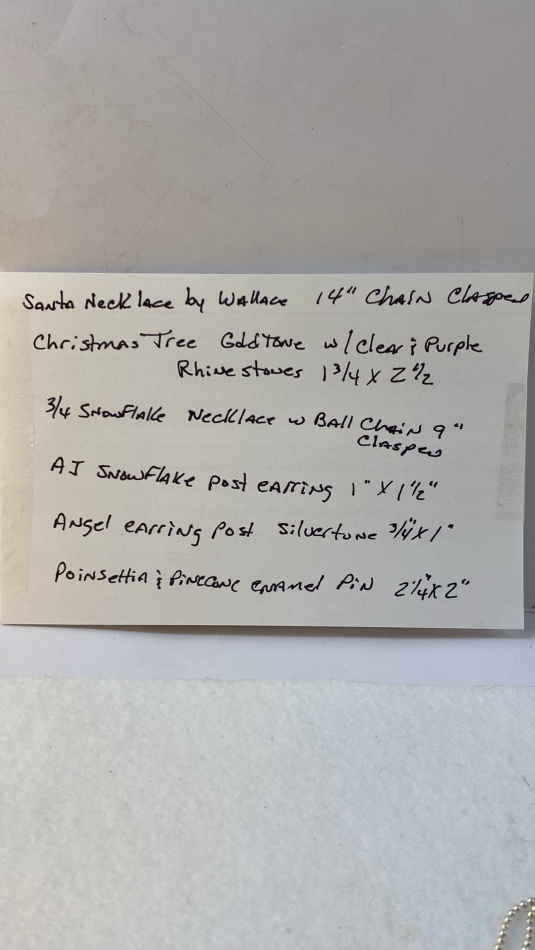 Santa Necklace by Wallace 14" Chain Clasped
Christmas Tree Goldtone w/ Clear & Purple
Rhinestones 1 3/4 x 2 1/2
3/4 Snowflake Necklace w Ball Chain 9"
Clasped
AJ Snowflake post earring 1" x 1 1/2"
Angel earring Post Silvertone 3/4" x 1"
Poinsettia & Pinecone enamel Pin 2 1/4" x 2"